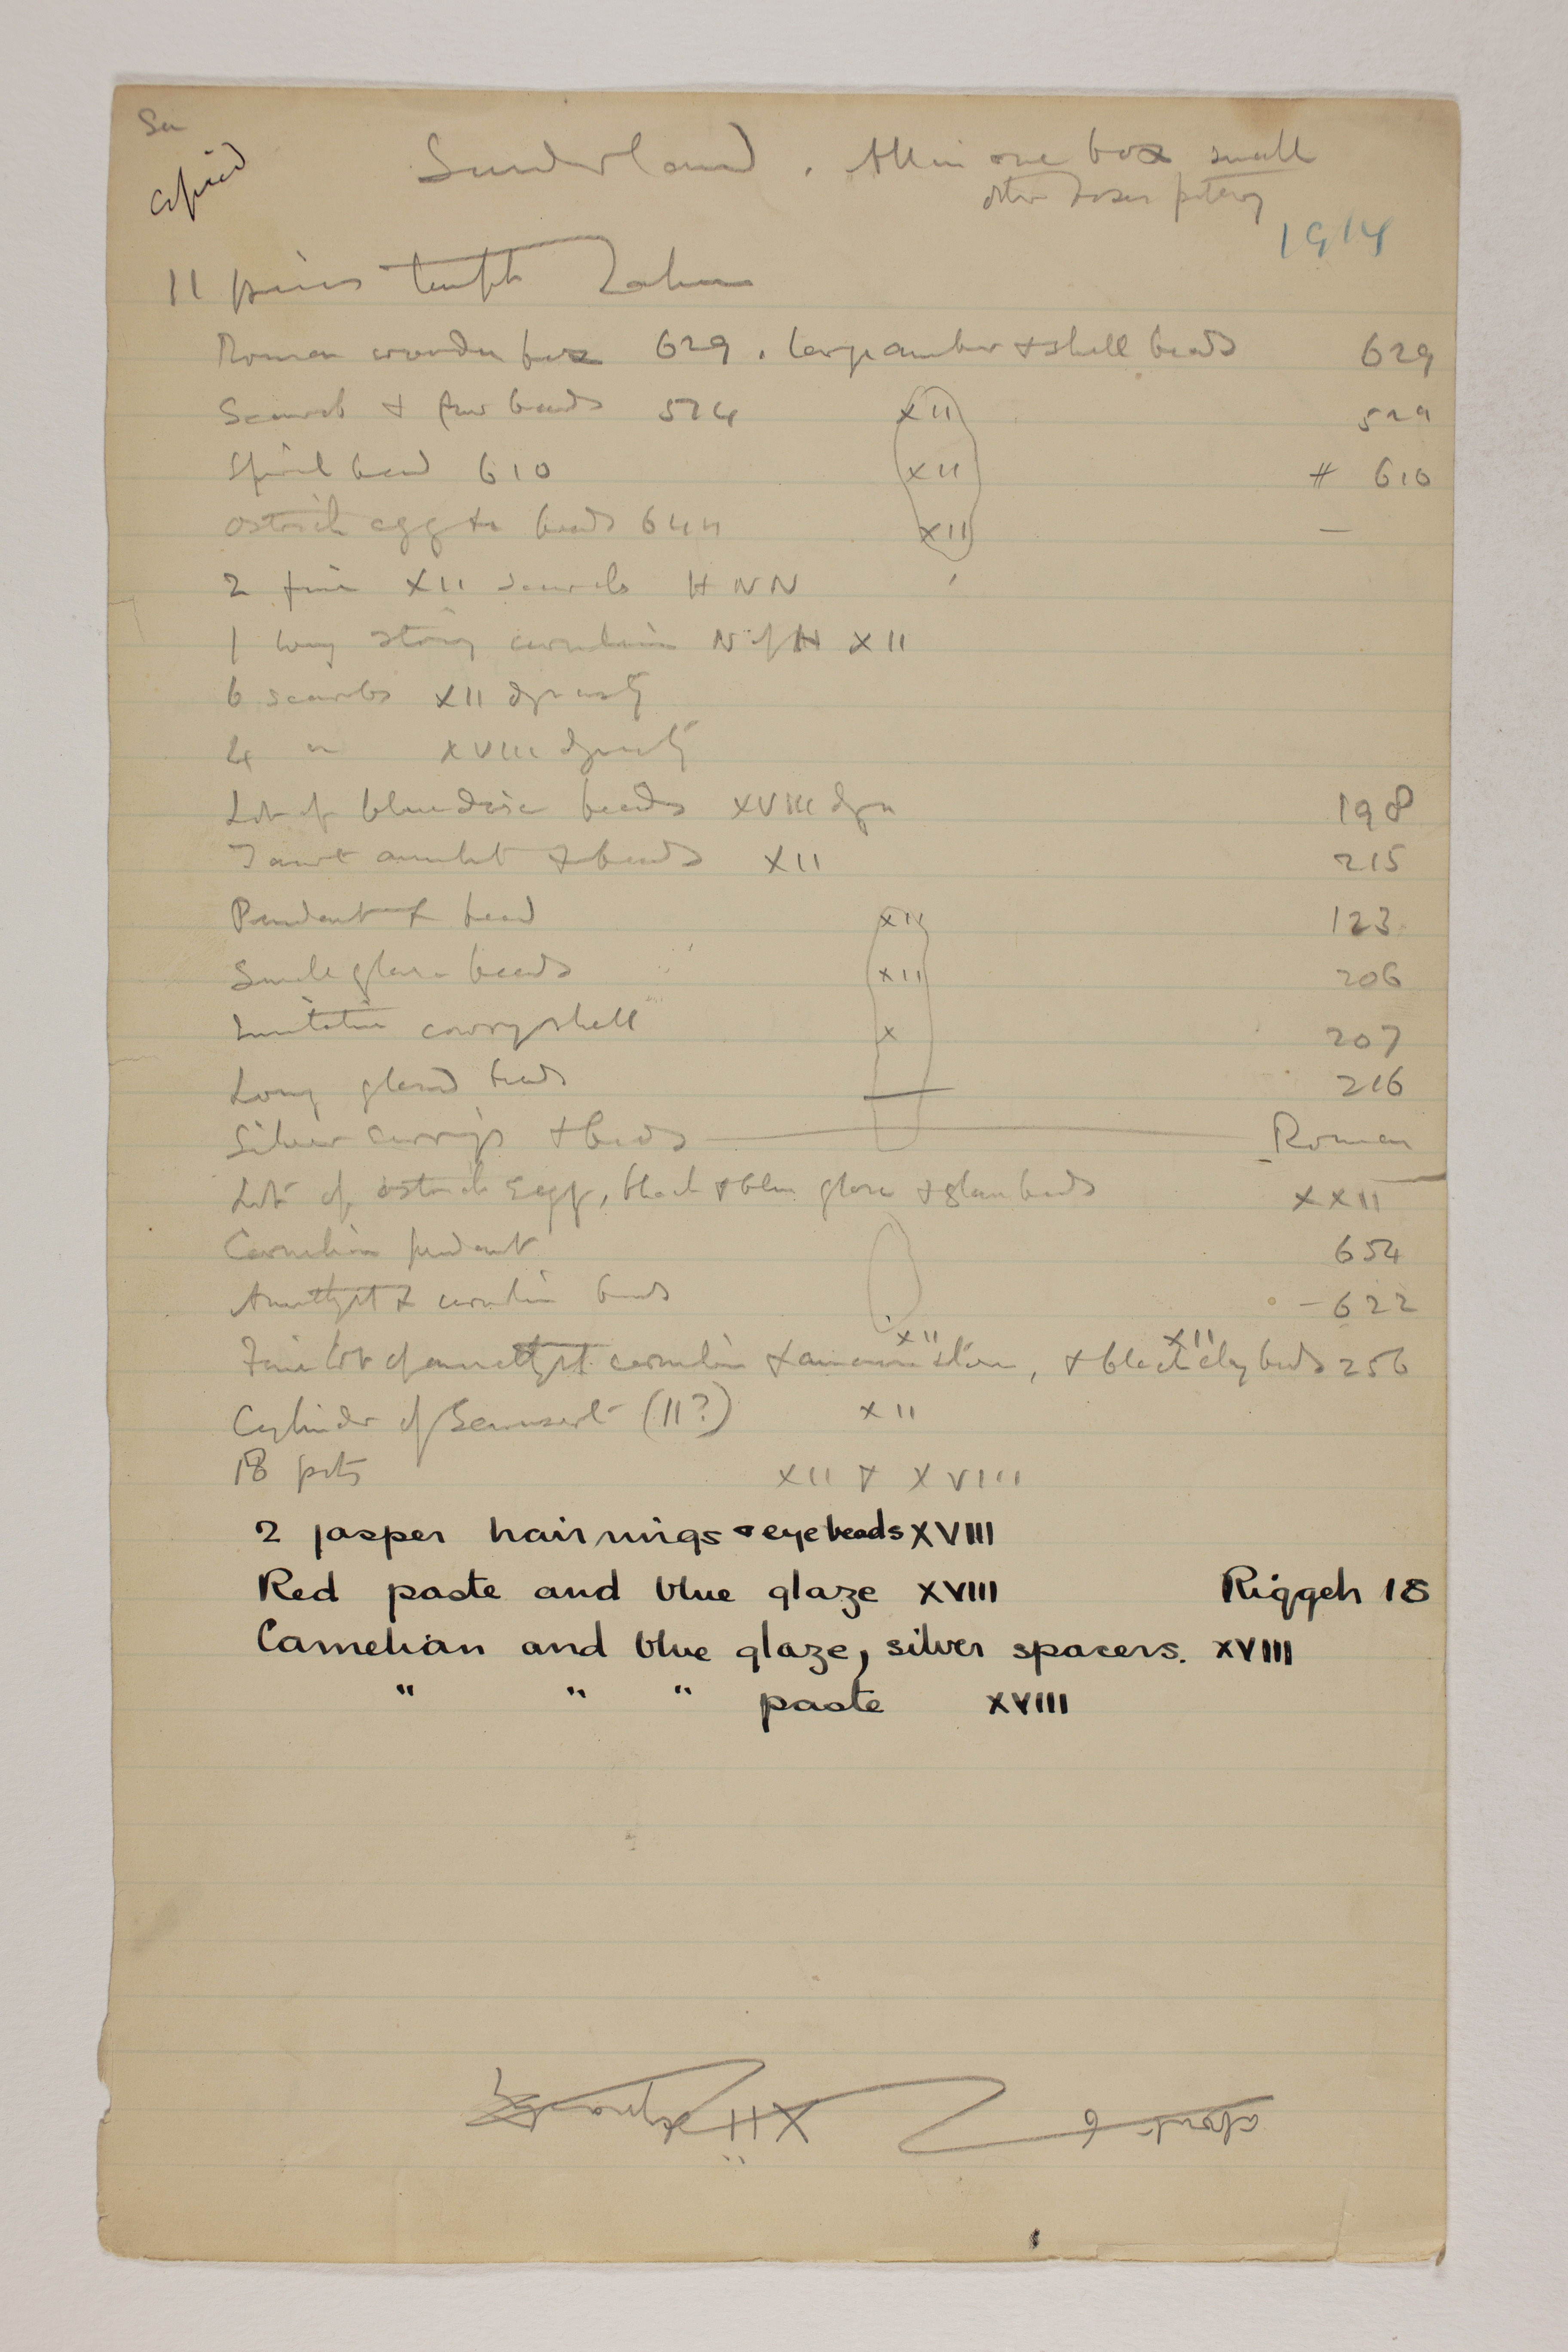 Su
copied
Sunderland. All in one box small
other boxes pottery
1914
11 pieces temple Lahun
Roman wooden box 629, large amber & shell beads 629
Scarab & few beads 524 XII 529
Spiral bead 610 XII # 610
Ostrich egg &c beads 644 XII —
2 fine XII scarabs H N N
1 long string carnelian N of H XII
6 scarabs XII dynasty
4 " XVIII dynasty
Lot of blue disc beads XVIII dyn 198
Taurt amulet & beads XII 215
Pendant & bead XII 123
Small glaze beads XII 206
Imitation cowry shell X 207
Long glazed beads 216
Silver earrings & beads — Roman
Lot of ostrich egg, black & blue glaze & glass beads XXII
Carnelian pendant 654
Amethyst & carnelian beads – 622
XII XII
Fine lot of amethyst carnelian & amazon stone, & black clay beads 256
Cylinder of Senusert (II?) XII
18 pots XII & XVIII
2 jasper hair rings & eye beads XVIII
Red paste and blue glaze XVIII Riqqeh 18
Carnelian and blue glaze, silver spacers. XVIII
" " " paste XVIII
about 6
XII dynasty